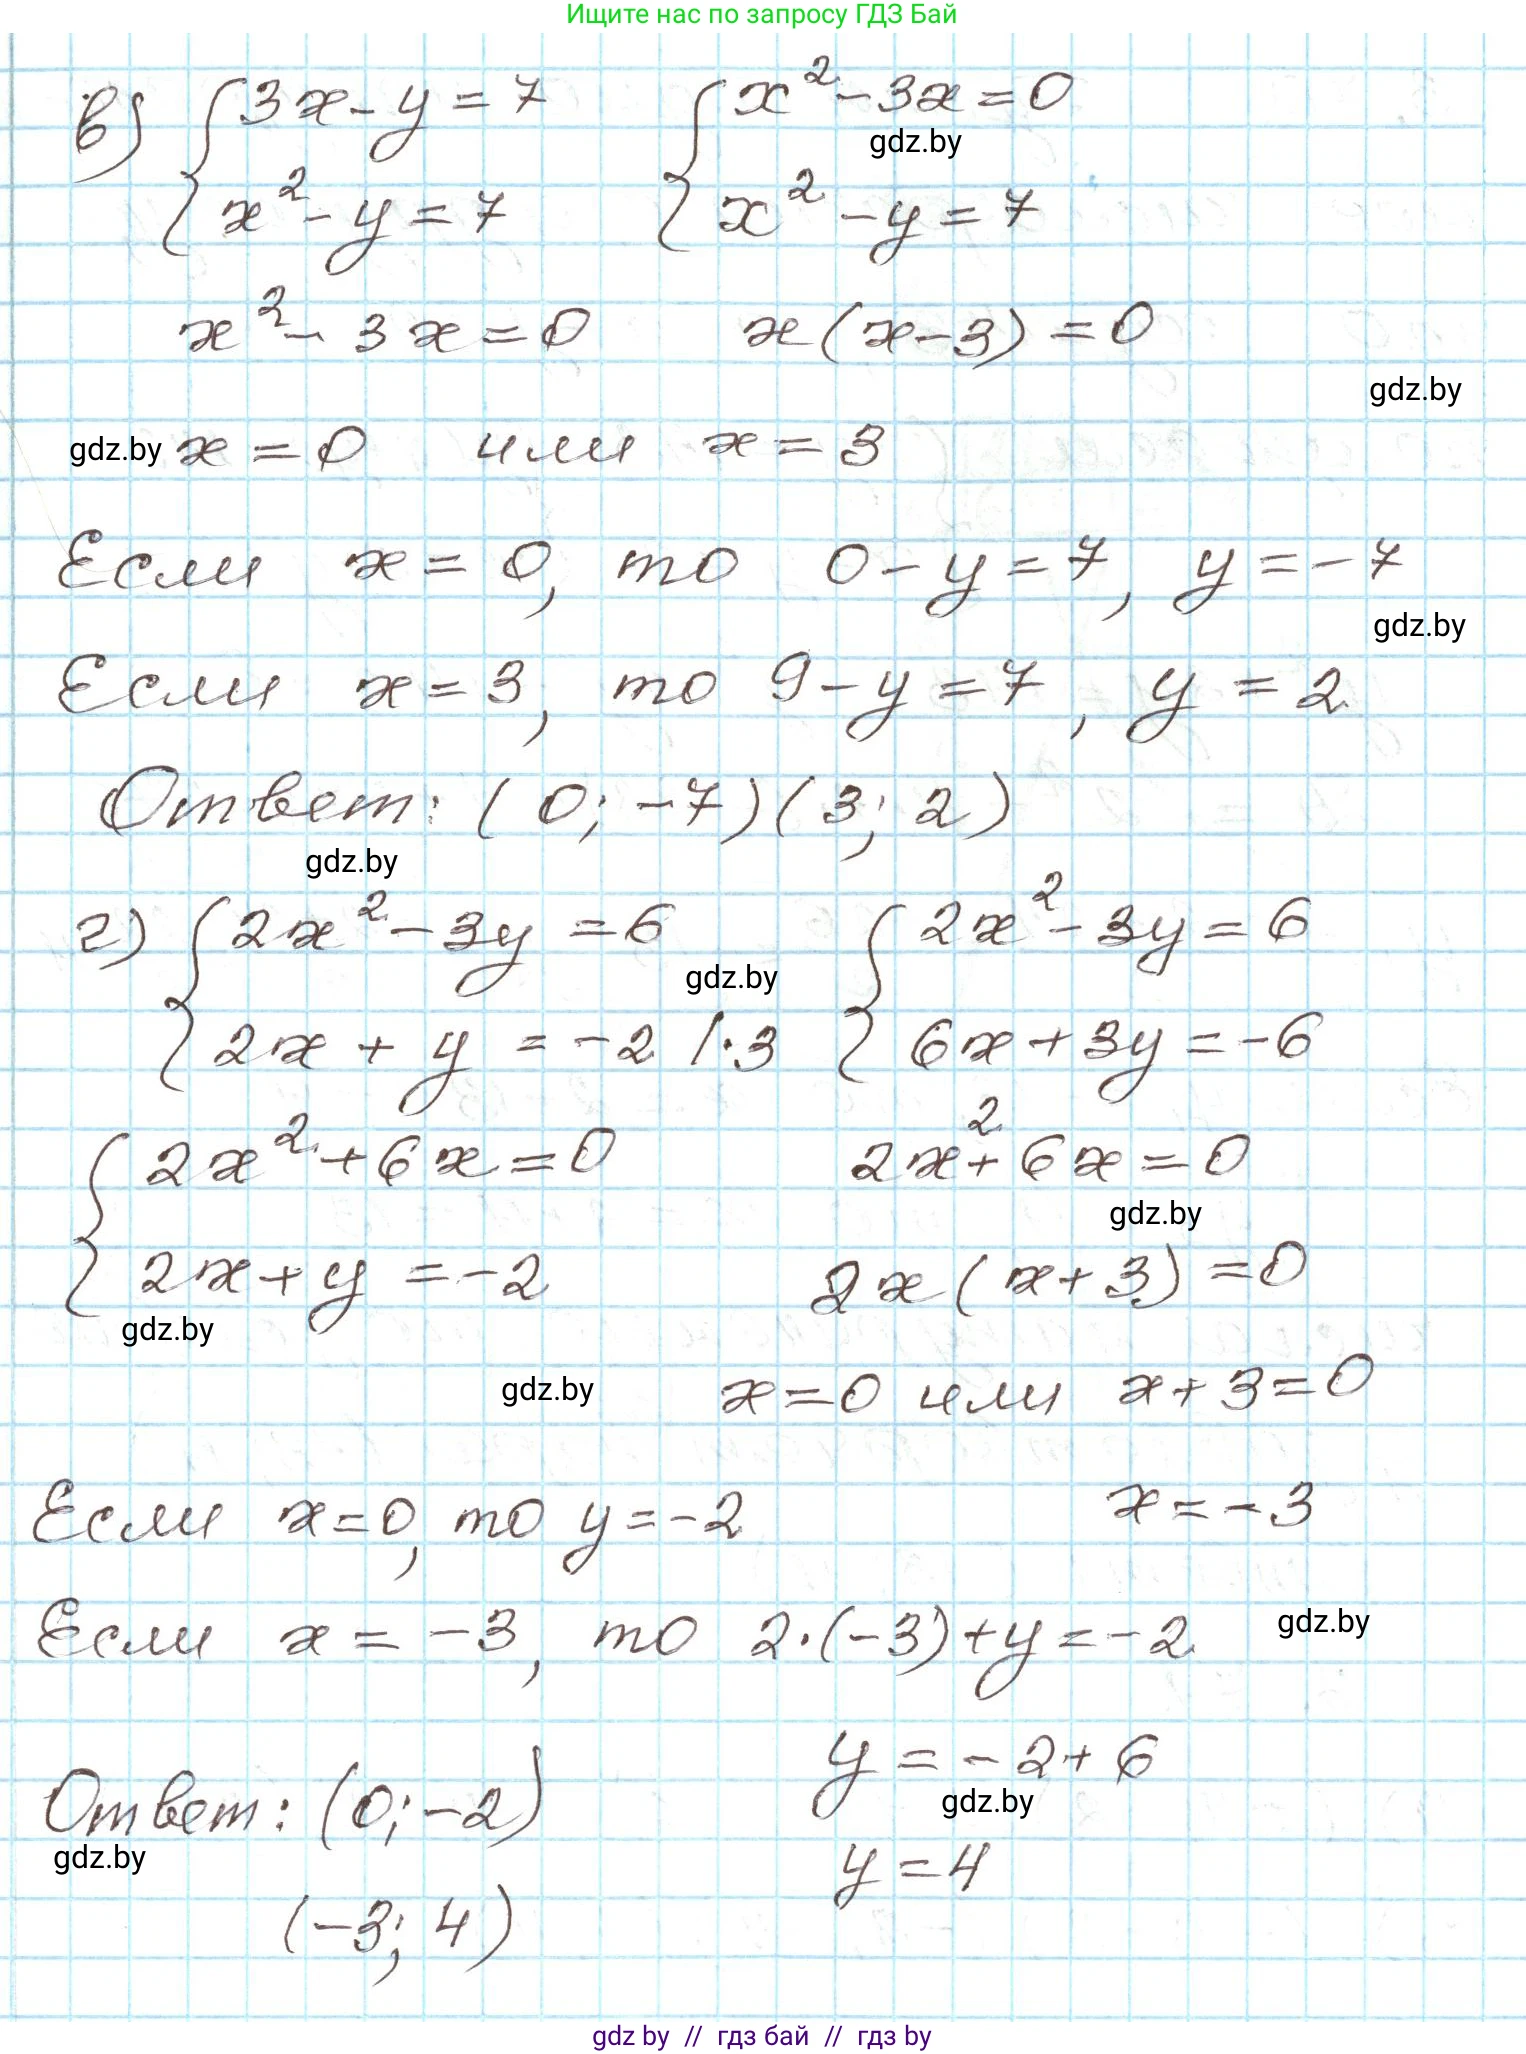 Ищите нас по запросу ГДЗ Бай
в) { 3x - y = 7 { x² - 3x = 0
gdz.by
x² - y = 7 x² - y = 7
x² - 3x = 0 x(x - 3) = 0
gdz.by
gdz.by x = 0 или x = 3
Если x = 0, то 0 - y = 7, y = -7
gdz.by
Если x = 3, то 9 - y = 7, y = 2
Ответ: (0; -7) (3; 2)
gdz.by
г) { 2x² - 3y = 6 { 2x² - 3y = 6
gdz.by
2x + y = -2 /·3 6x + 3y = -6
{ 2x² + 6x = 0 2x² + 6x = 0
gdz.by
2x + y = -2 2x(x + 3) = 0
gdz.by
gdz.by x = 0 или x + 3 = 0
Если x = 0, то y = -2 x = -3
Если x = -3, то 2·(-3) + y = -2 gdz.by
y = -2 + 6
Ответ: (0; -2) gdz.by
gdz.by y = 4
(-3; 4)
gdz by // гдз бай // гдз by